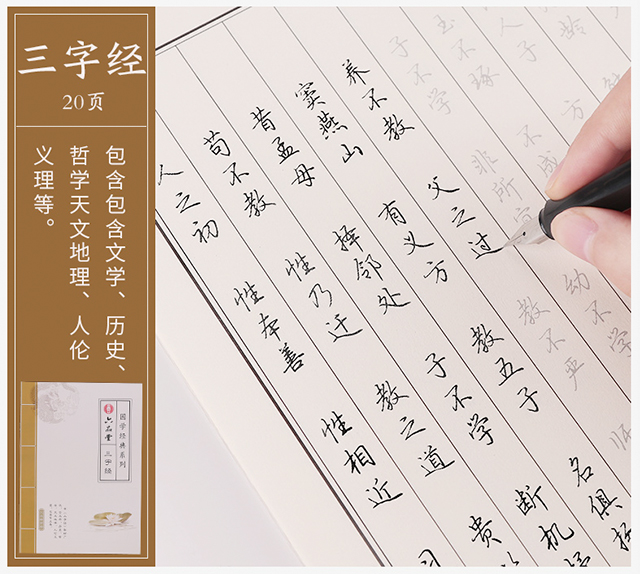 三字经
20页
包含包含文学、历史、
哲学天文地理、人伦
义理等。
国学经典系列
六品堂
三字经
人之初 性本善 性相近 习
苟不教 性乃迁 教之道 贵
昔孟母 择邻处 子不学 断机
窦燕山 有义方 教五子 名俱扬
养不教 父之过 教不严 师
子不学 非所宜 幼不学
玉不琢 不成
人子 方
龄 能